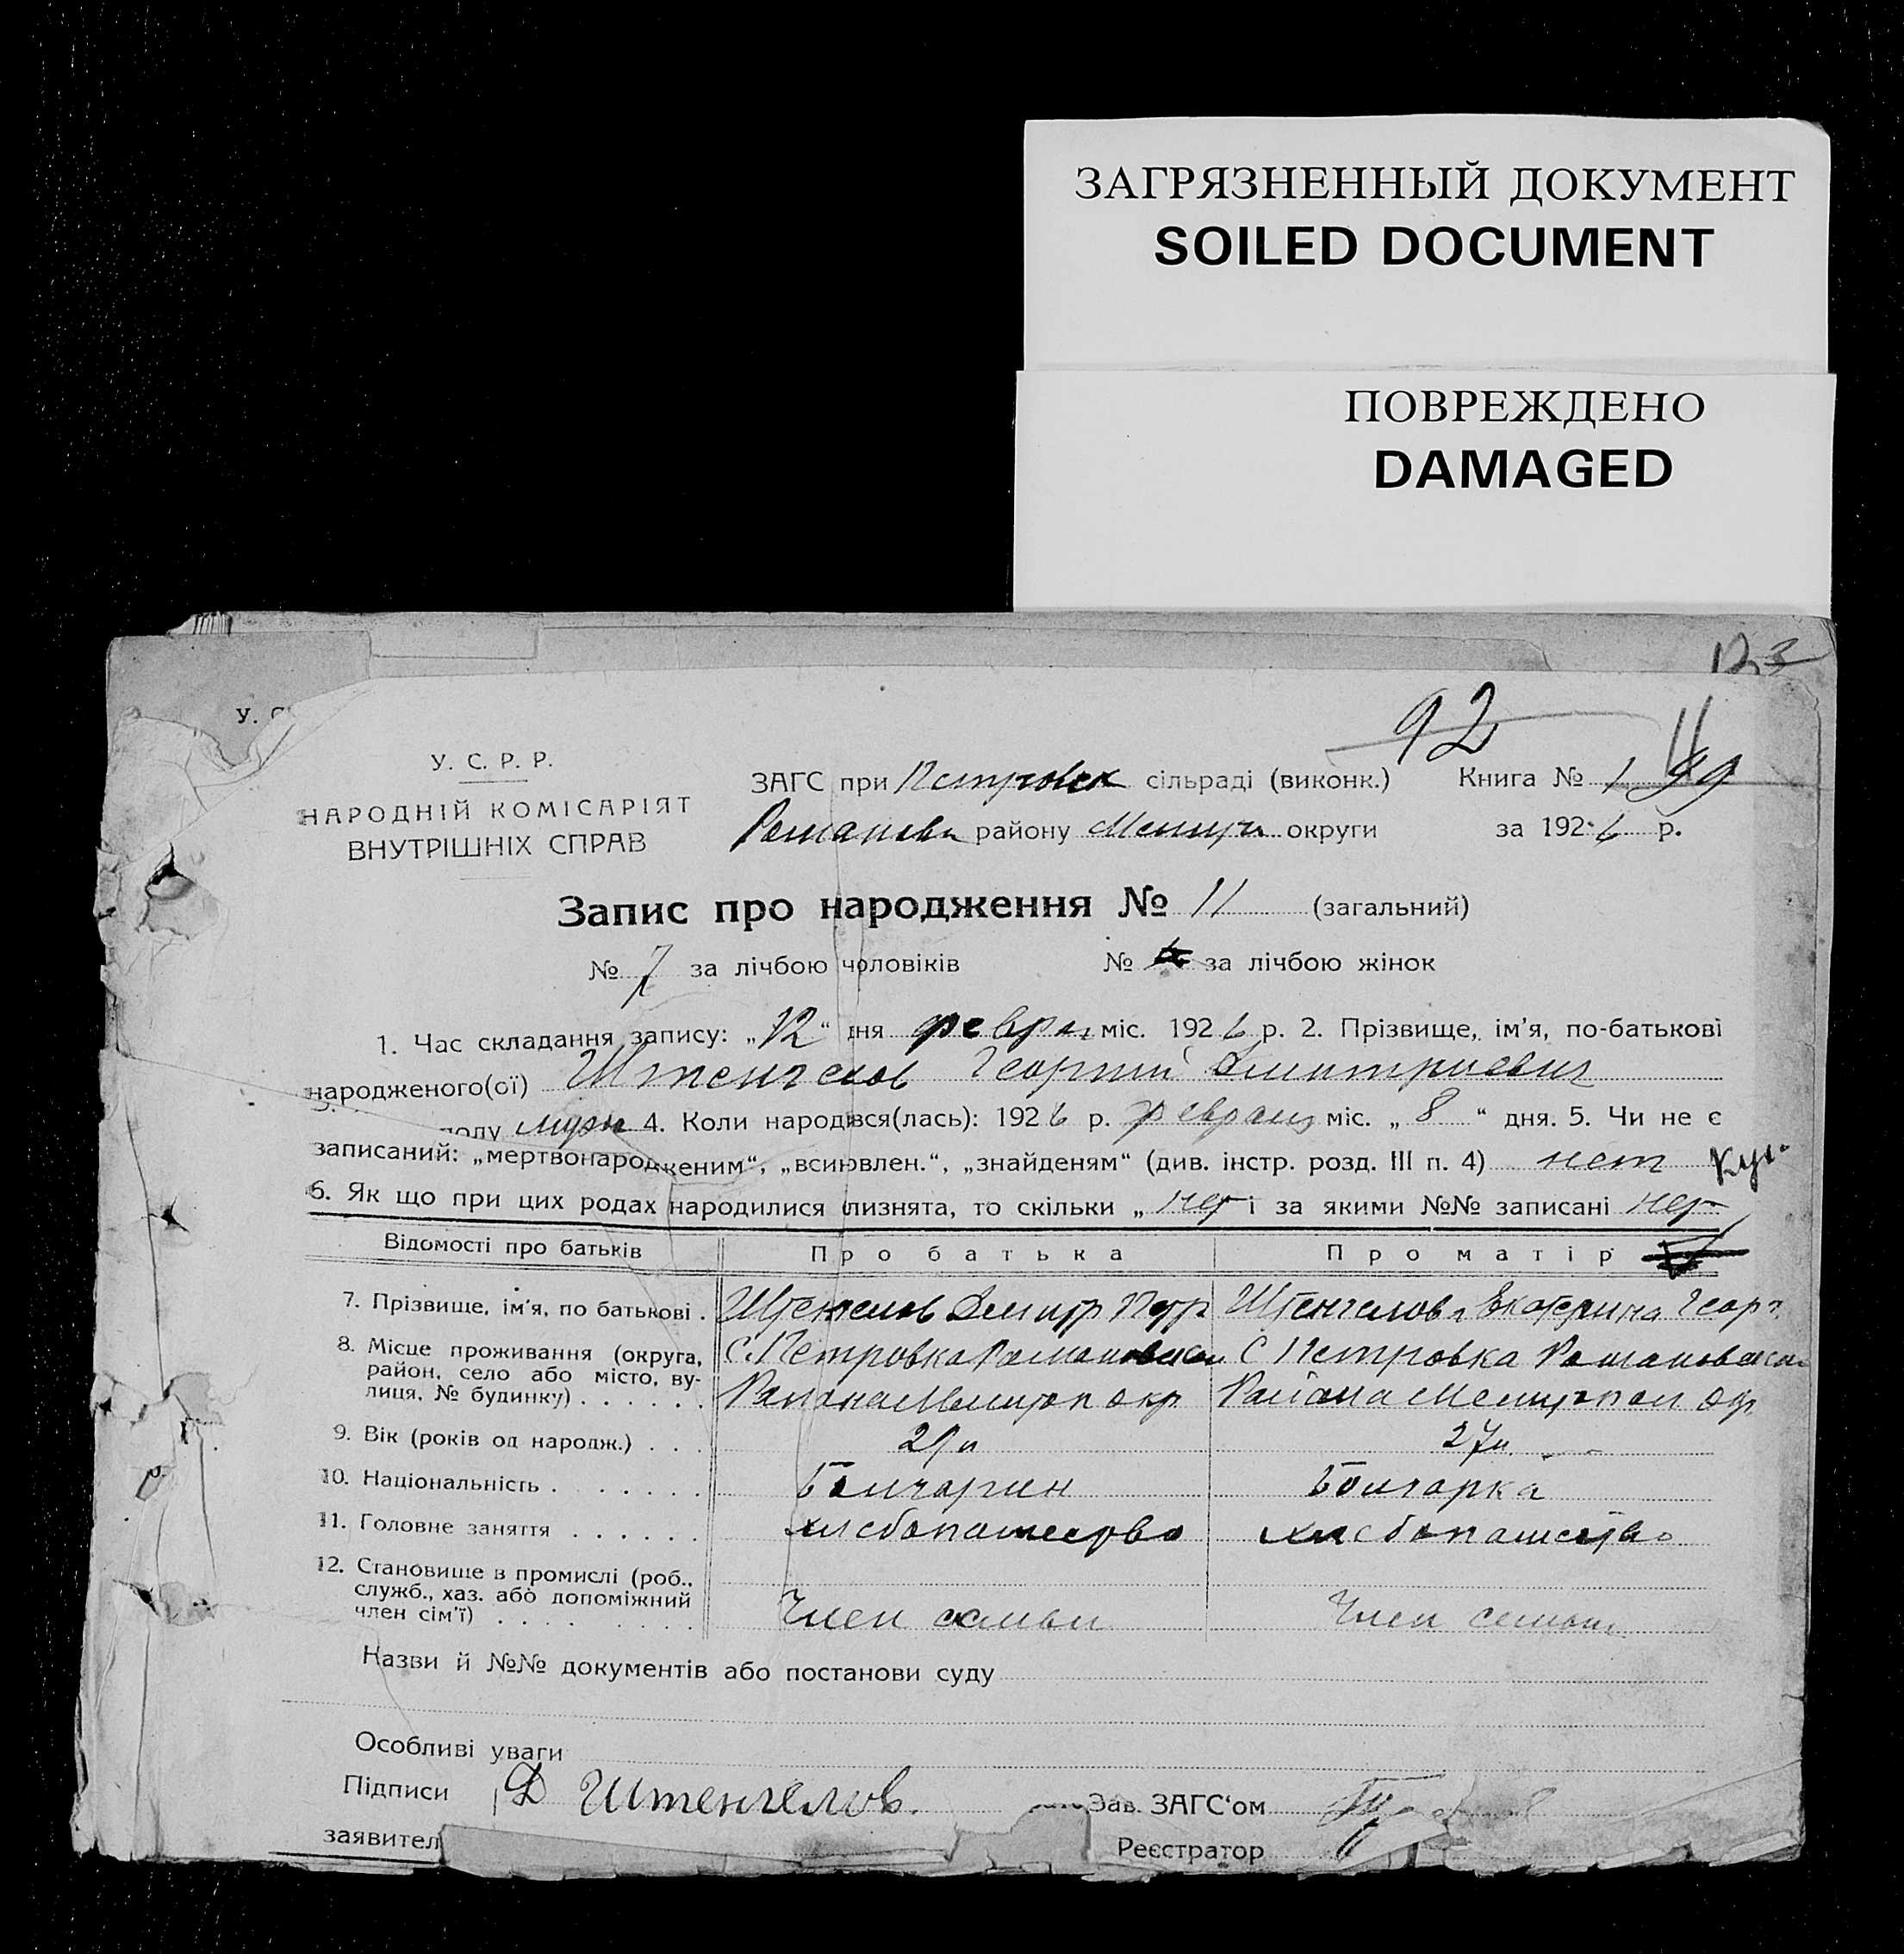 ЗАГРЯЗНЕННЫЙ ДОКУМЕНТ
SOILED DOCUMENT
ПОВРЕЖДЕНО
DAMAGED
У. С
92
У. С. Р. Р.
НАРОДНІЙ КОМІСАРІЯТ
ВНУТРІШНІХ СПРАВ
ЗАГС при Петровск сільраді (виконк.) Книга № 1
Романовк району Мелитп округи за 1926 р.
Запис про народження № 11 (загальний)
№ 7 за лічбою чоловіків № за лічбою жінок
1. Час складання запису: „12“ дня феврал міс. 1926 р. 2. Прізвище, ім’я, по-батькові
народженого(ої) Штенгелов Георгий Дмитриевич
полу муж 4. Коли народився(лась): 1926 р. февраля міс. „8“ дня. 5. Чи не є
записаний: „мертвонародженим“, „всиновлен.“, „знайденям“ (див. інстр. розд. III п. 4) нет
6. Як що при цих родах народилися близнята, то скільки „ нет і за якими №№ записані нет
Відомості про батьків Про батька Про матір
7. Прізвище, ім’я, по батькові . Штенгелов Дмитр Петр Штенгелова Екатерина Георг
8. Місце проживання (округа, район, село або місто, вулиця, № будинку) . . . . . . С. Петровка Романовском С Петровка Романовском
Района Мелитоп окр Района Мелитопол окр
9. Вік (років од народж.) . . . 27л.
10. Національність . . . . . . . Болгарин Болгарка
11. Головне заняття . . . . . . хлебопашество хлебопашество
12. Становище в промислі (роб., служб., хаз. або допоміжний член сім’ї) . . . . . . . . Член семьи Член семьи
Назви й №№ документів або постанови суду
Особливі уваги
Підписи Д Штенгелов. Зав. ЗАГС‘ом
заявител Реєстратор